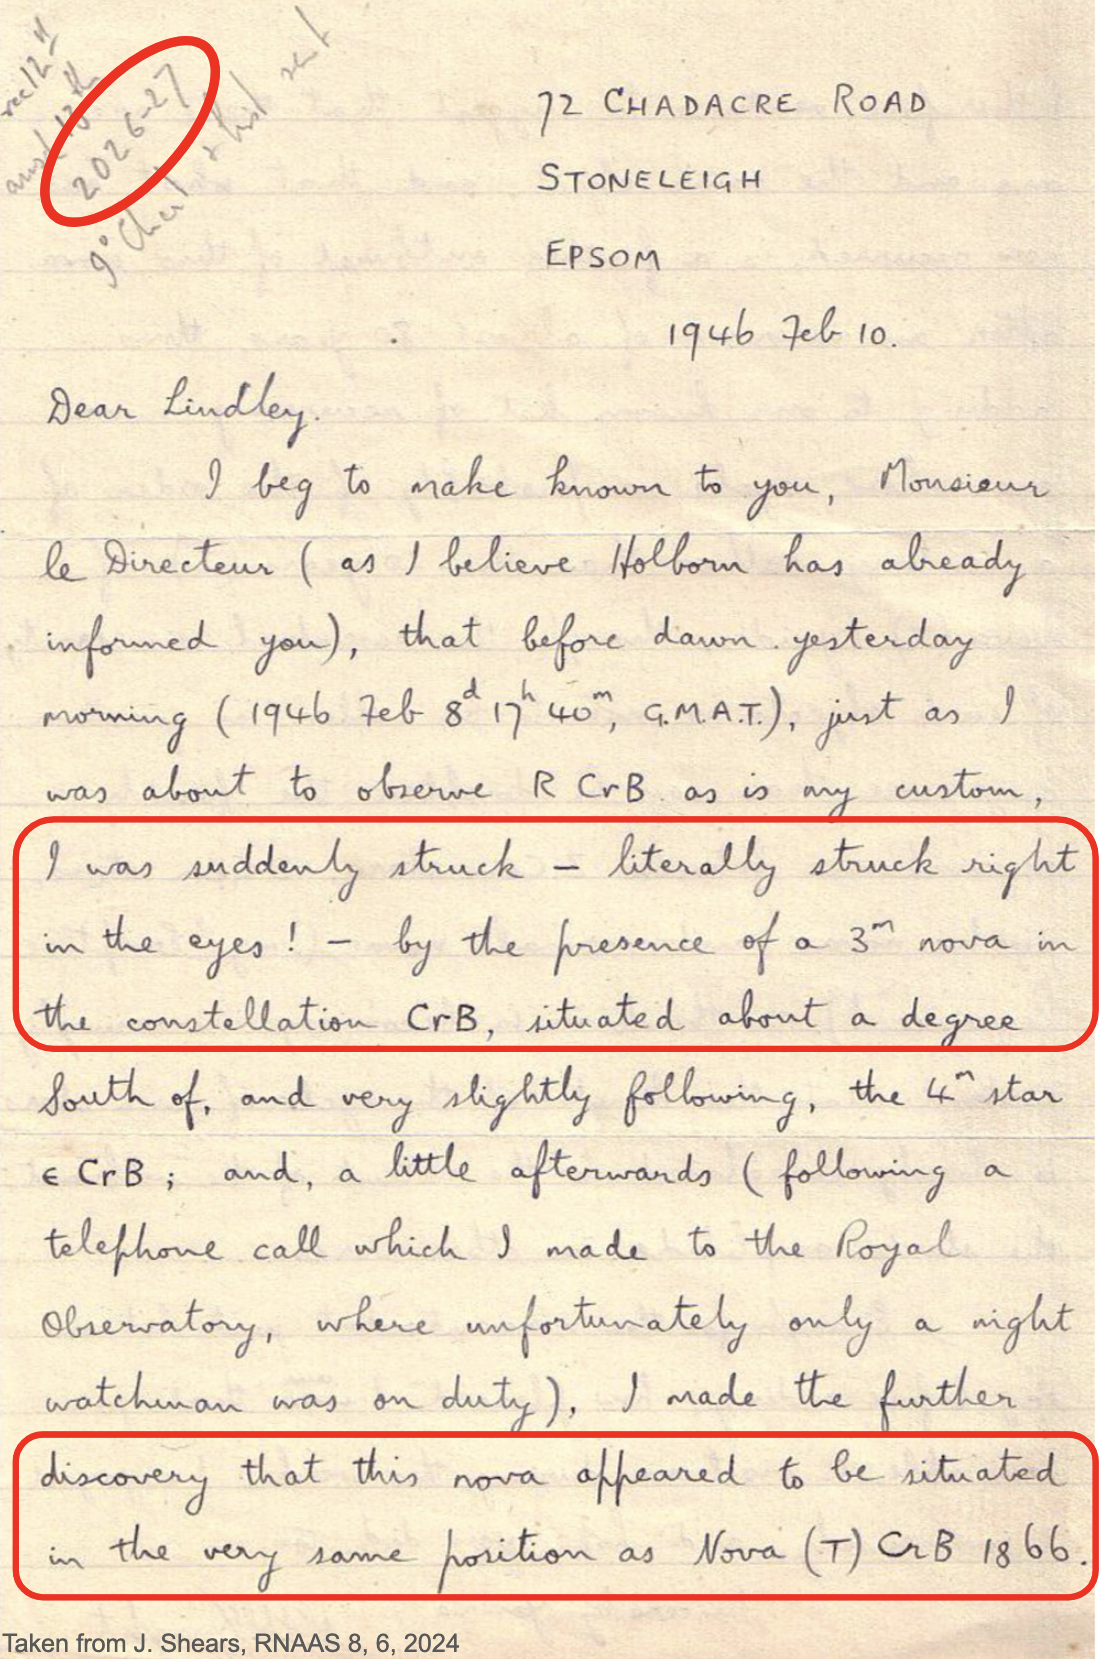 rec 12th
ansd 13th
2026-27
9° Chart & hist sent
72 CHADACRE ROAD
STONELEIGH
EPSOM
1946 Feb 10.
Dear Lindley.
I beg to make known to you, Monsieur
le Directeur (as I believe Holborn has already
informed you), that before dawn yesterday
morning (1946 Feb 8d 17h 40m, G.M.A.T.), just as I
was about to observe R CrB as is my custom,
I was suddenly struck – literally struck right
in the eyes! – by the presence of a 3m nova in
the constellation CrB, situated about a degree
South of, and very slightly following, the 4m star
ε CrB; and, a little afterwards (following a
telephone call which I made to the Royal
Observatory, where unfortunately only a night
watchman was on duty), I made the further
discovery that this nova appeared to be situated
in the very same position as Nova (T) CrB 1866.
Taken from J. Shears, RNAAS 8, 6, 2024